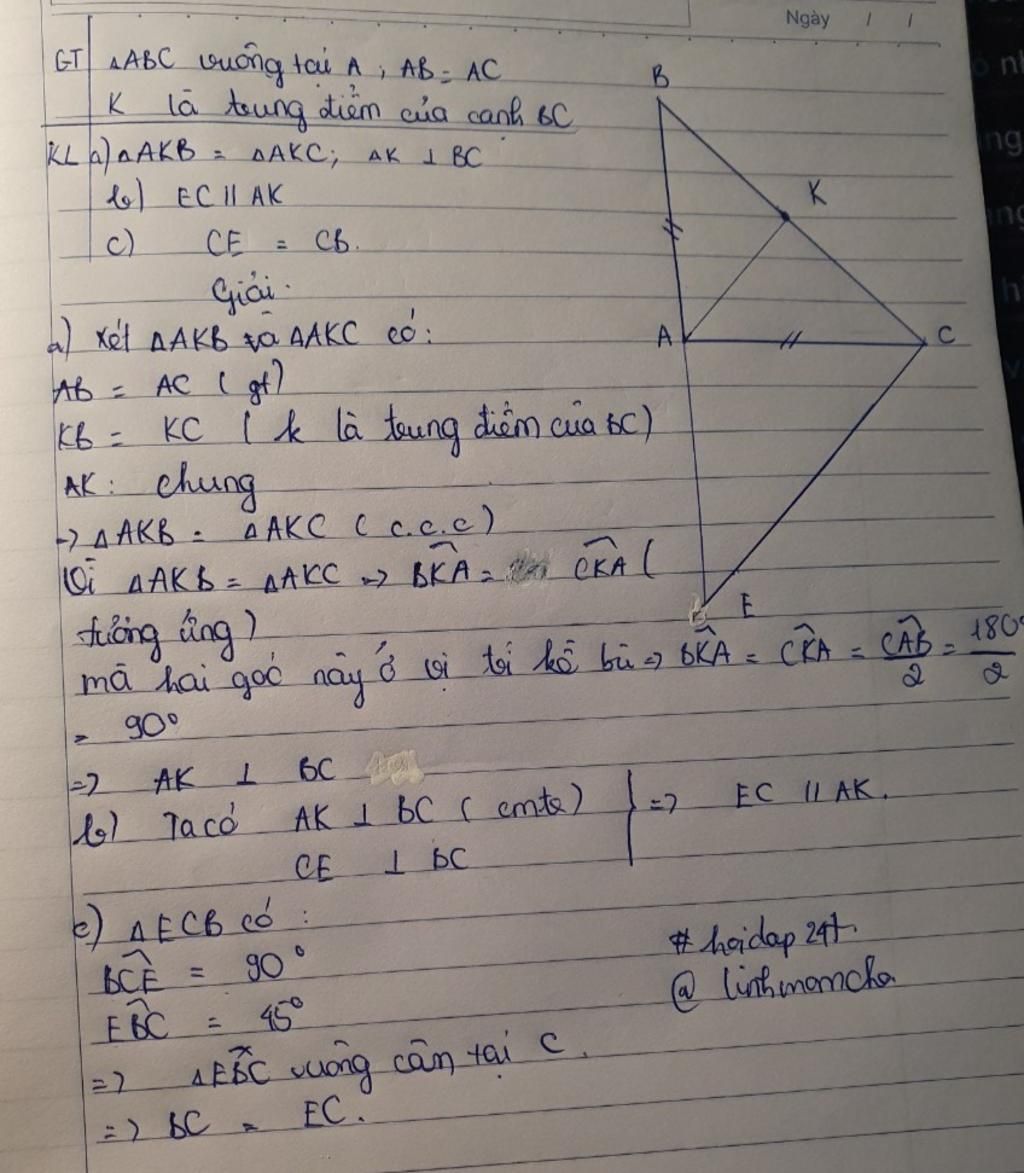 Ngày / /
GT ΔABC vuông tại A, AB = AC
K là trung điểm của cạnh BC
KL a) ΔAKB = ΔAKC; AK ⊥ BC
b) EC // AK
c) CE = CB.
Giải.
a) Xét ΔAKB và ΔAKC có:
AB = AC (gt)
KB = KC ( k là trung điểm của BC)
AK: chung
-> ΔAKB = ΔAKC (c.c.c)
Vì ΔAKB = ΔAKC => BKA = CKA (
tương ứng)
mà hai góc này ở vị trí kề bù => BKA = CKA = CAB/2 = 180°/2
= 90°
=> AK ⊥ BC
b) Ta có AK ⊥ BC (cmtr) } => EC // AK.
CE ⊥ BC
c) ΔECB có:
BCE = 90°
EBC = 45°
=> ΔEBC vuông cân tại C.
=> BC = EC.
#hoidap24h.
@linhmomcha
B
K
A
C
E